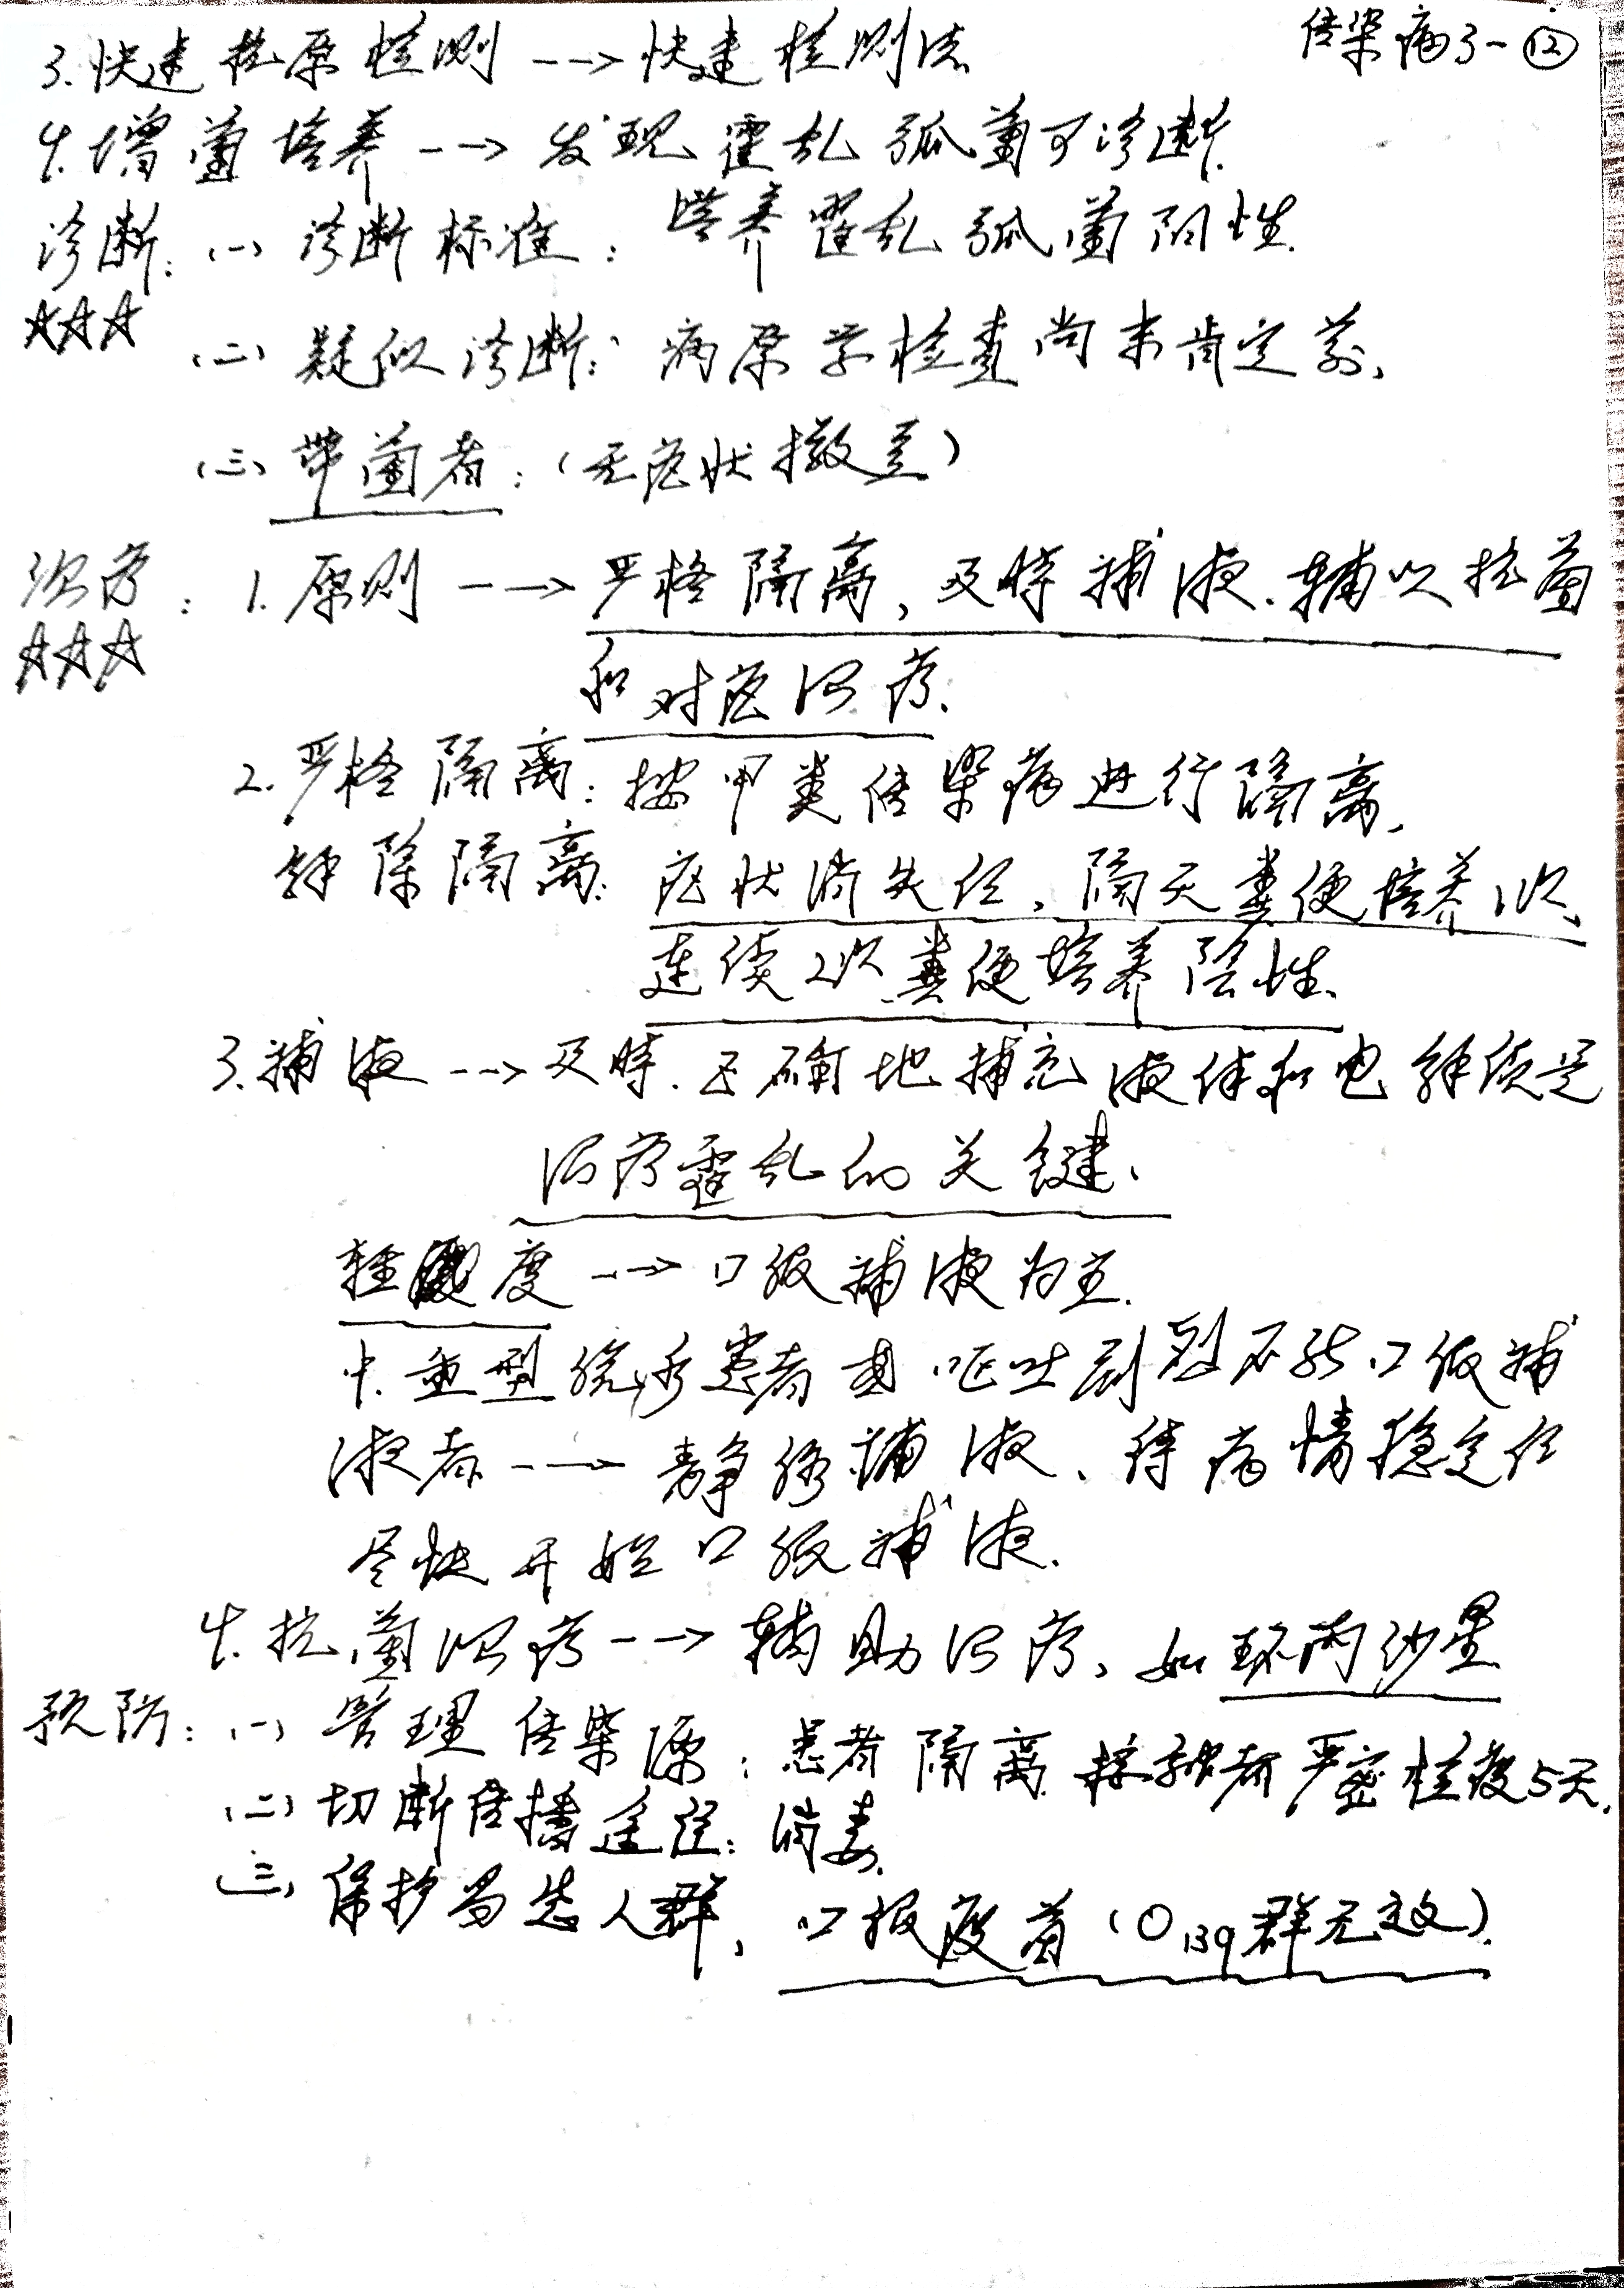 传染病3-⑫
3.快速抗原检测 --→ 快速检测法
4.增菌培养 --→ 发现霍乱弧菌可诊断.
诊断: (一) 诊断标准: 培养霍乱弧菌阳性.
☆☆☆
(二) 疑似诊断: 病原学检查尚未肯定前,
(三) 带菌者: (无症状)
治疗: 1.原则 --→ 严格隔离, 及時补液. 辅以抗菌
☆☆☆
和对症治疗.
2.严格隔离: 按甲类传染病进行隔离,
解除隔离: 症状消失后, 隔天粪便培养1次、
连续2次粪便培养陰性.
3.补液 --→ 及時.正确地补充液体和电解质是
治疗霍乱的关键.
轻度 --→ 口服补液为主.
中.重型脱水患者或呕吐剧烈不能口服补
液者 --→ 静脉补液、待病情稳定后
尽快开始口服补液.
4.抗菌治疗 --→ 辅助治疗, 如环丙沙星
预防: (一) 管理传染源: 患者隔离 接触者严密检疫5天.
(二) 切断传播途径: 消毒.
(三) 保护易感人群, 口服疫苗 (O139群无效).